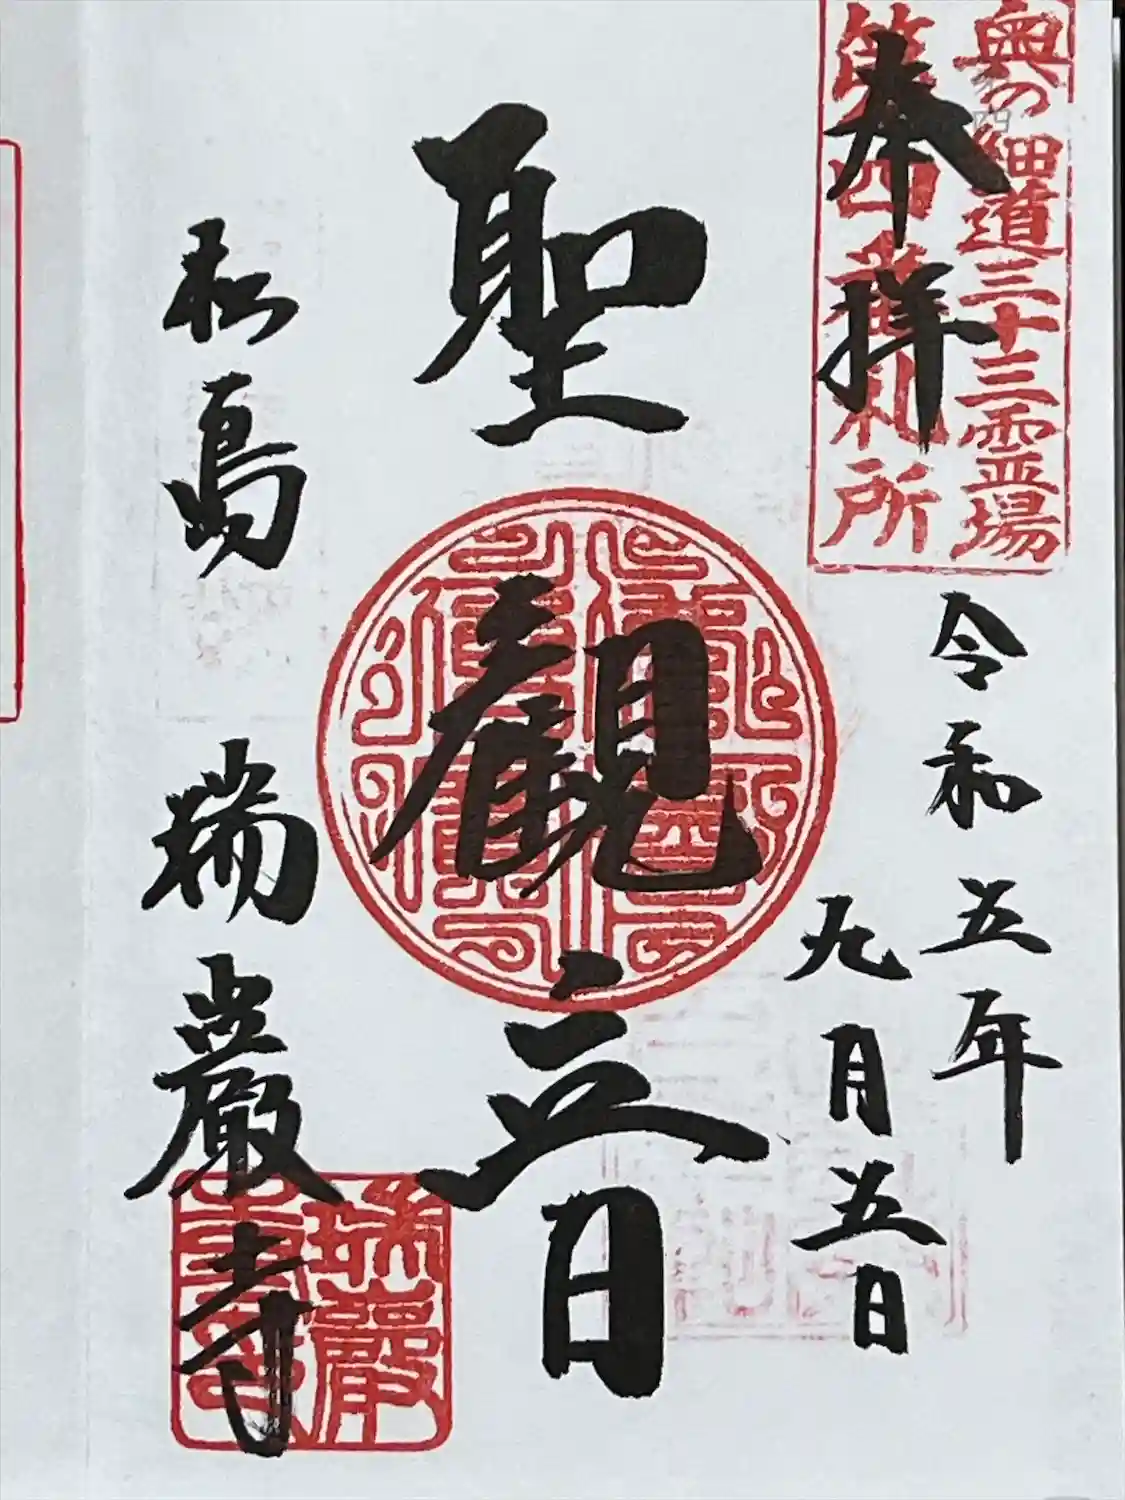 奥の細道三十三霊場
第四番札所
奉拝
令和五年
九月五日
聖観音
松島 瑞巌寺
瑞巌